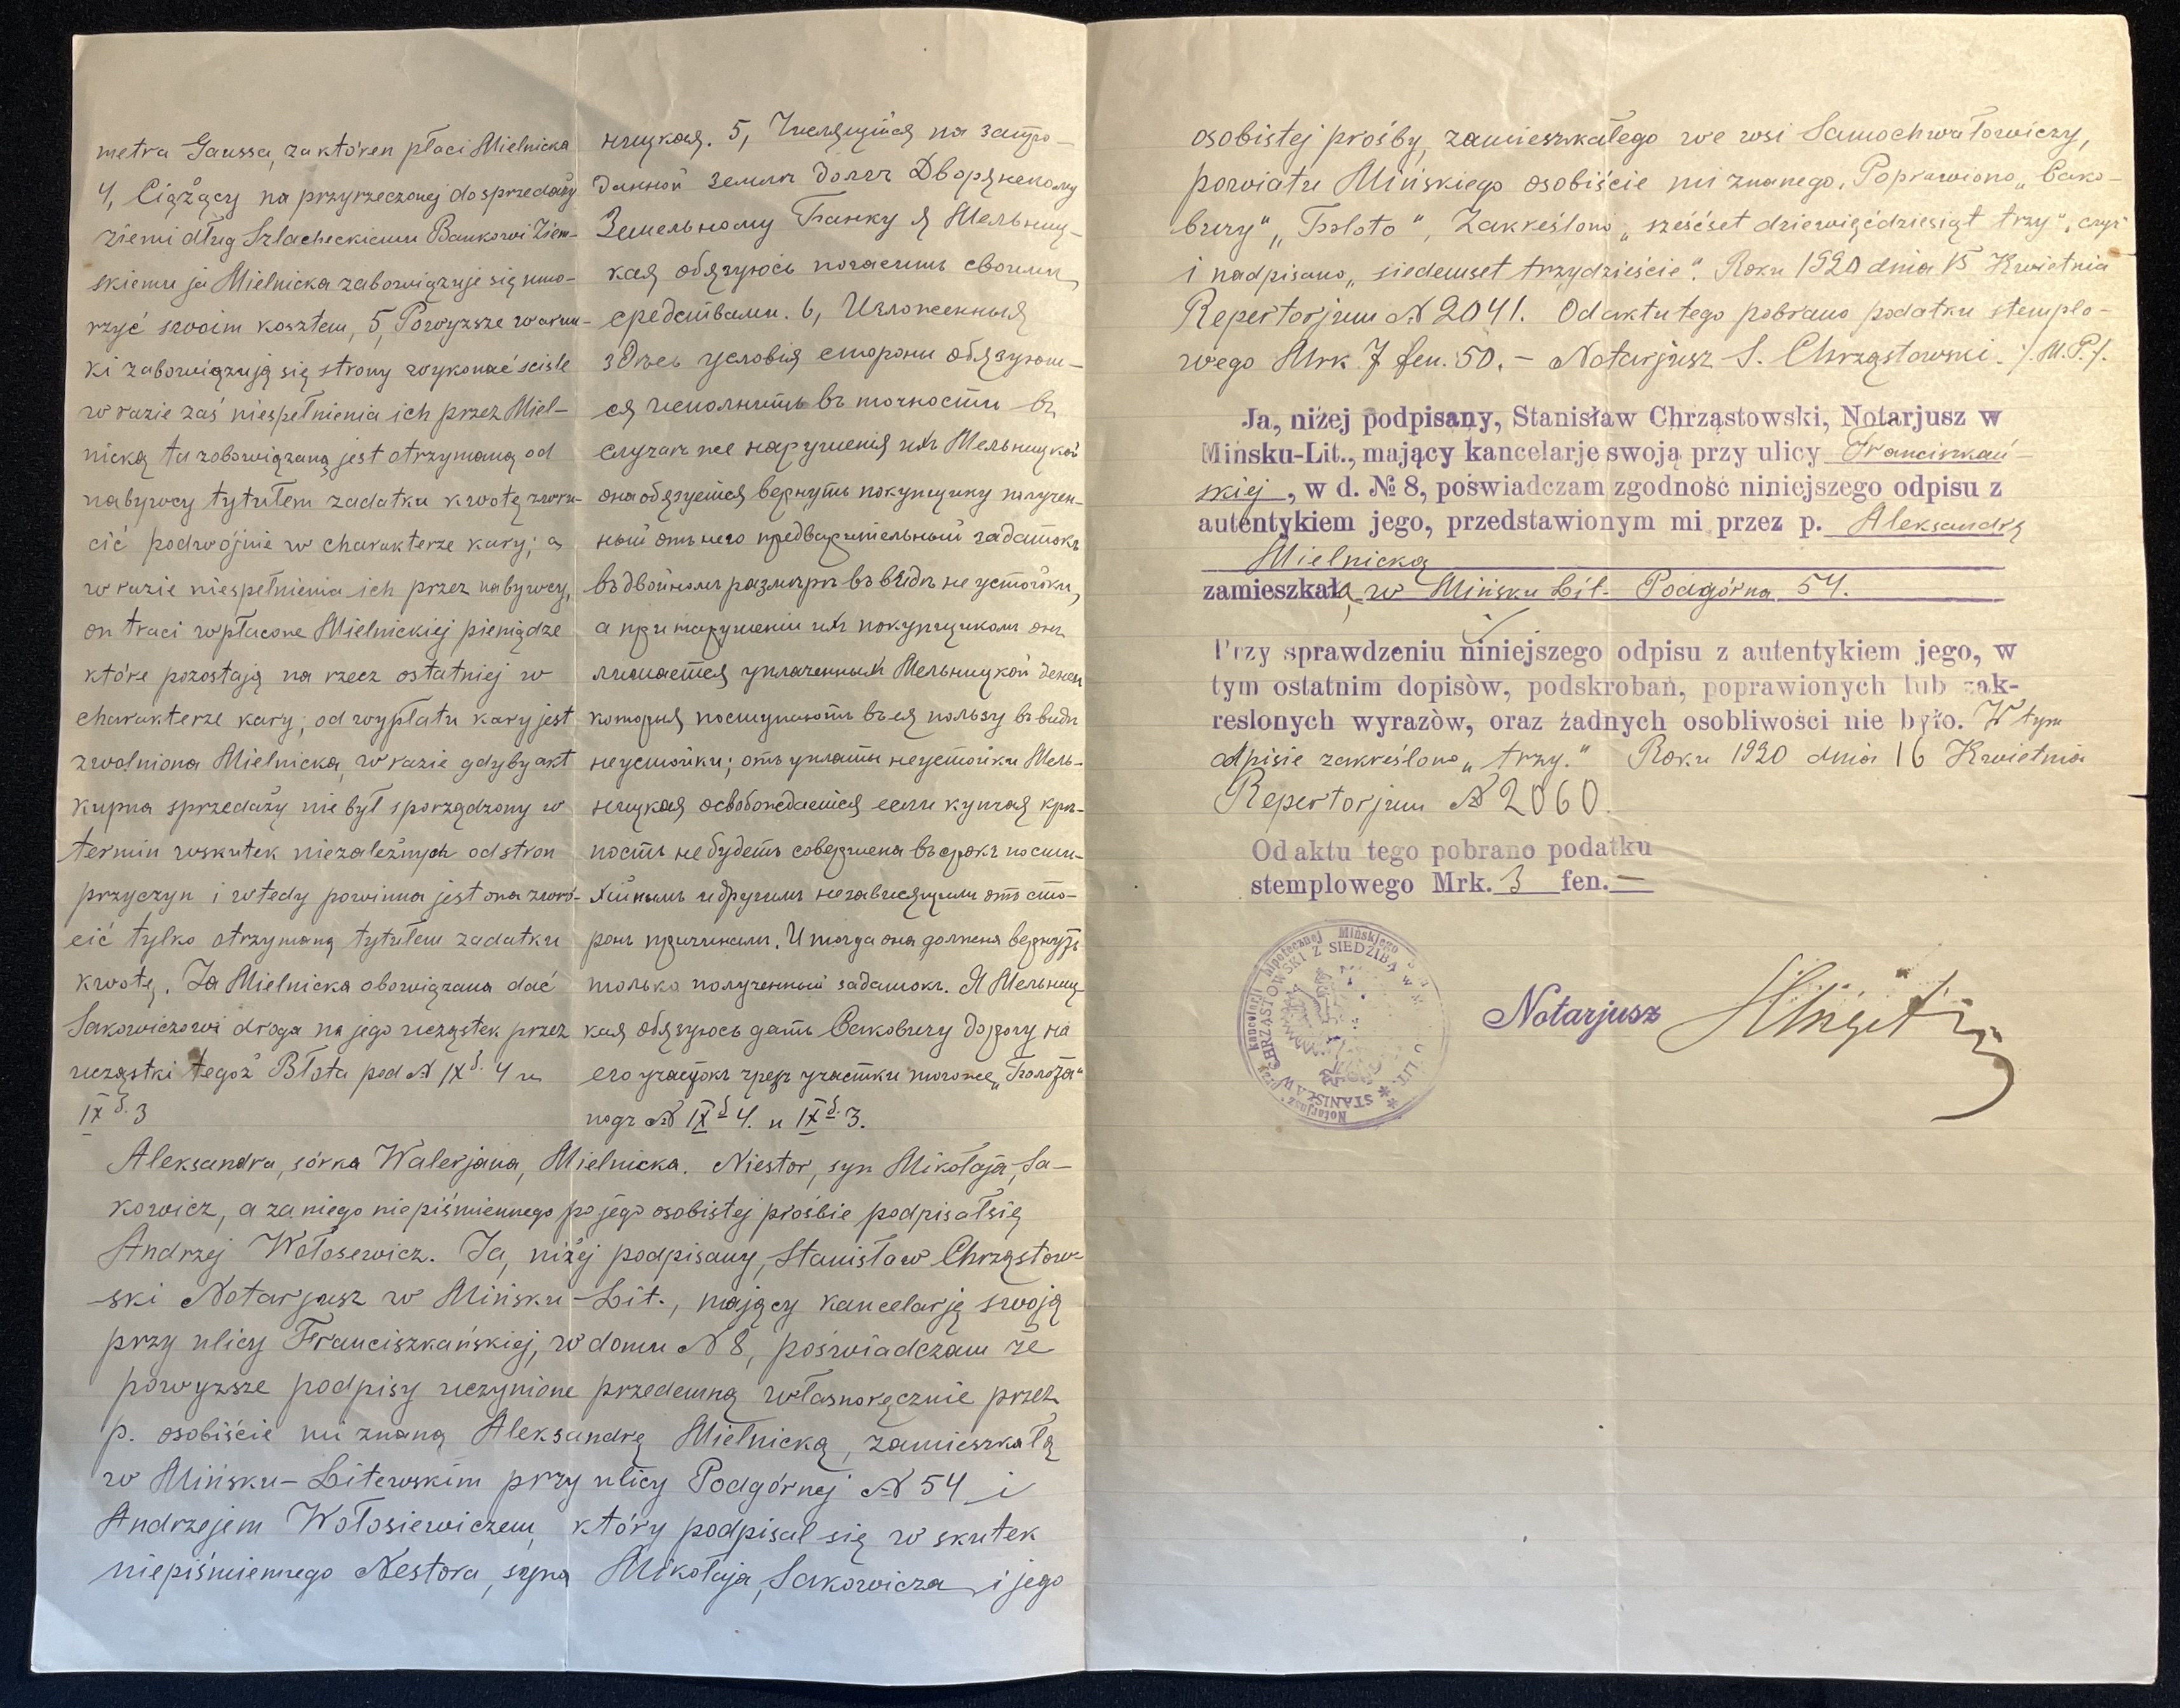 metra Gaussa, za któren płaci Mielnicka
4, Ciążący na przyrzeczonej do sprzedaży
ziemi dług Szlacheckiemu Bankowi Ziem-
skiemu ja Mielnicka zabowiązuje się umo-
rzyć swoim kosztem, 5, Powyższe warun-
ki zabowiązują się strony wykonać ściśle
w razie zaś niespełnienia ich przez Miel-
nicką ta zobowiązaną jest otrzymaną od
nabywcy tytułem zadatku kwotę zwru-
cić podwójnie w charakterze kary; a
w razie niespełnienia ich przez nabywcy,
on traci wpłacone Mielnickiej pieniądze
które pozostają na rzecz ostatniej w
charakterze kary; od wypłatu kary jest
zwolniona Mielnicka, w razie gdyby akt
kupna sprzedaży nie był sporządzony w
termin wskutek niezależnych od stron
przyczyn i wtedy powinna jest ona zwró-
cić tylko otrzymaną tytułem zadatku
kwotę. Ja Mielnicka obowiązana dać
Sakowiczowi droga na jego ucząstek przez
ucząstki tegoż Błota pod № IX 4 и
IX 3
ницкая. 5, Числящийся на запро-
данной земли долгъ Дворянскому
Земельному Банку я Мельниц-
кая обязуюсь погасить своими
средствами. 6, Изложенныя
здѣсь условія стороны обязуют-
ся исполнить въ точности въ
случаѣ же нарушенія ихъ Мельницкой
она обязуется вернуть покупщику получен-
ный отъ него предварительный задатокъ
въ двойномъ размѣрѣ въ видѣ не устойки,
а при нарушеніи ихъ покупщикомъ онъ
лишается уплаченныхъ Мельницкой денегъ
которыя поступаютъ въ ея пользу въ видѣ
неустойки; отъ уплаты неустойки Мель-
ницкая освобождается если купчая крѣ-
пость не будетъ совершена въ срокъ по сти-
хійнымъ и другимъ независящимъ отъ сто-
ронъ причинамъ. И тогда она должна вернуть
только полученный задатокъ. Я Мельниц-
кая обязуюсь дать Саковичу дорогу на
его участокъ чрезъ участки того же „Болота“
подъ № IX 4. и IX 3.
Aleksandra, córka Walerjana, Mielnicka. Niestor, syn Mikołaja, Sa-
kowicz, a za niego niepiśmiennego po jego osobistej prośbie podpisał się
Andrzej Wołosewicz. Ja, niżej podpisany, Stanisław Chrząstow-
ski Notarjusz w Mińsku-Lit., mający kancelarję swoją
przy ulicy Franciszkańskiej, w domu № 8, poświadczam że
powyższe podpisy uczynione przedemną własnoręcznie przez
p. osobiście mi znaną Aleksandrę Mielnicką, zamieszkałą
w Mińsku-Litewskim przy ulicy Podgórnej № 54 i
Andrzejem Wołosiewiczem, który podpisał się w skutek
niepiśmiennego Nestora, syna Mikołaja, Sakowicza i jego
osobistej prośby, zamieszkałego we wsi Samochwałowiczy,
powiatu Mińskiego osobiście mi znanego. Poprawiono „Сако-
вичу“ „Болото“, Zakreślono „sześćset dziewięćdziesiąt trzy“,
i nadpisano „siedemset trzydzieście“. Roku 1920 dnia 15 Kwietnia
Repertorjum № 2041. Od aktu tego pobrano podatku stemplo-
wego Mrk 7 fen. 50. – Notarjusz S. Chrząstowski. /. M.P./.
Ja, niżej podpisany, Stanisław Chrząstowski, Notarjusz w
Mińsku-Lit., mający kancelarje swoją przy ulicy Franciszkań-
skiej, w d. № 8, poświadczam zgodność niniejszego odpisu z
autentykiem jego, przedstawionym mi przez p. Aleksandrę
Mielnicką
zamieszkałą w Mińsku Lit. Podgórna 54.
Przy sprawdzeniu niniejszego odpisu z autentykiem jego, w
tym ostatnim dopisòw, podskrobań, poprawionych lub zak-
reslonych wyrazòw, oraz żadnych osobliwości nie było. W tym
odpisie zakreślono „trzy.“ Roku 1920 dnia 16 Kwietnia
Repertorjum № 2060.
Od aktu tego pobrano podatku
stemplowego Mrk. 3 fen. —
Notarjusz przy kancelarji hipotecznej Mińskjego
STANISŁAW CHRZĄSTOWSKI Z SIEDZIBĄ W
LIT.
Notarjusz